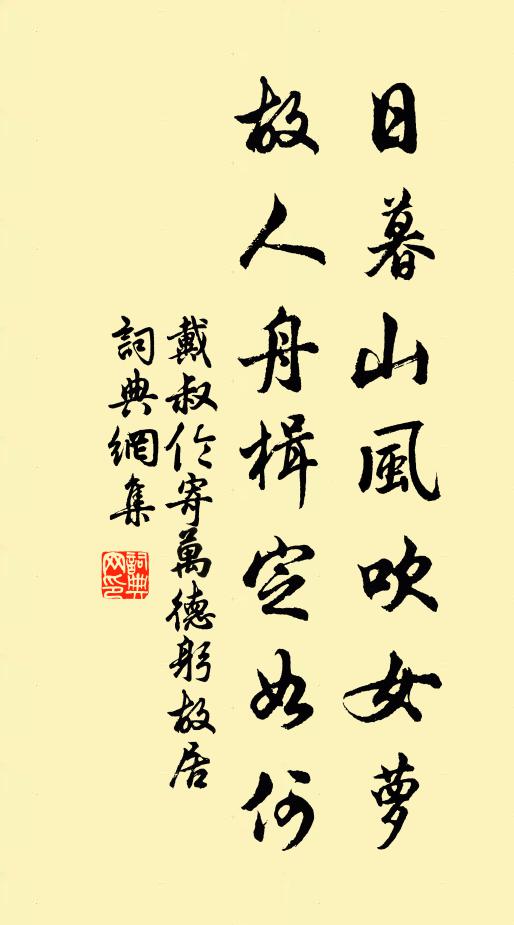 日暮山風吹女萝
故人舟楫定如何
戴叔伦寄萬德躬故居
詞典網集
詞典网印